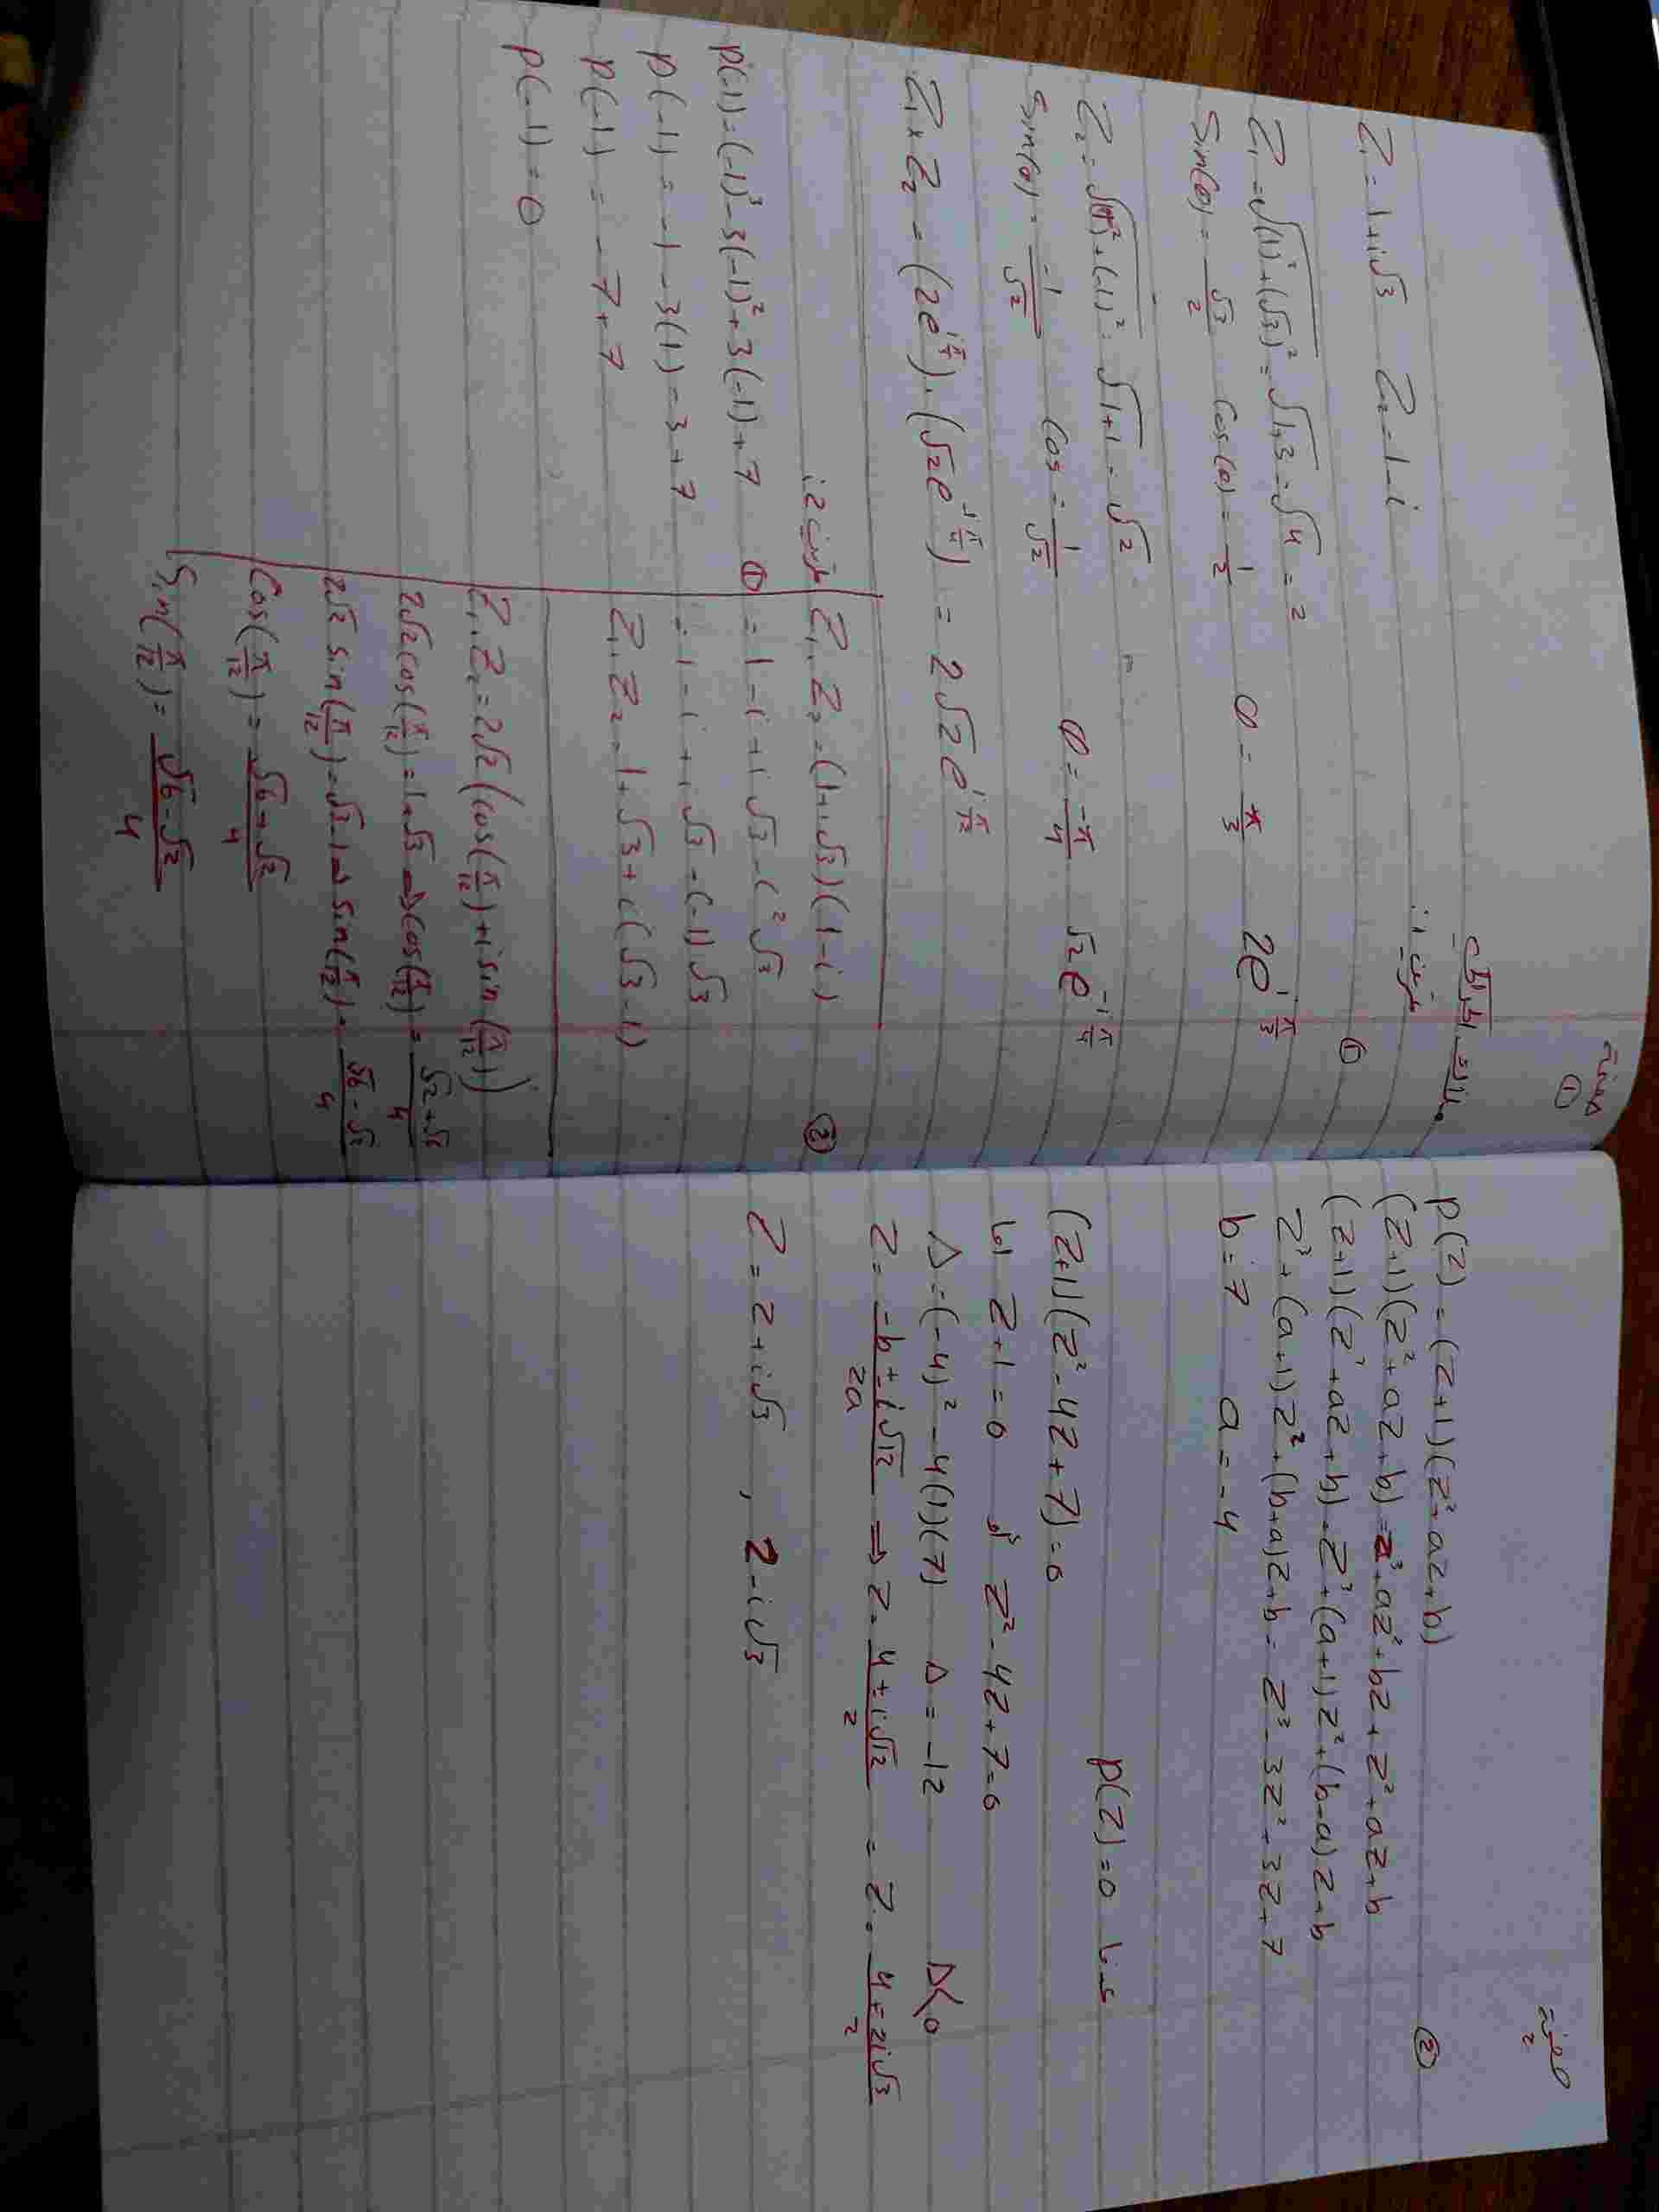 صفحة
①
عبدالله البراق
تمرين 1:
①
Z₁ = 1+i√3   Z₂ = 1-i
Z₁ = √(1)²+(√3)² = √1+3 = √4 = 2
Sin(θ) = √3/2   Cos(θ) = 1/2   θ = π/3   2e^{iπ/3}
Z₂ = √(1)²+(-1)² = √1+1 = √2
Sin(θ) = -1/√2   Cos = 1/√2   θ = -π/4   √2e^{-iπ/4}
Z₁×Z₂ = (2e^{iπ/3}).(√2e^{-iπ/4}) = 2√2e^{iπ/12}
②
Z₁.Z₂ = (1+i√3)(1-i)
= 1-i+i√3-i²√3
= 1-i+i√3-(-1)√3
Z₁.Z₂ = 1+√3+i(√3-1)
Z₁.Z₂ = 2√2(cos(π/12)+i sin(π/12))
2√2cos(π/12) = 1+√3 ⇒ cos(π/12) = √2+√6/4
2√2 sin(π/12) = √3-1 ⇒ sin(π/12) = √6-√2/4
Cos(π/12) = √6+√2/4
Sin(π/12) = √6-√2/4
تمرين 2:
①
P(-1) = (-1)³-3(-1)²+3(-1)+7
P(-1) = -1-3(1)=3+7
P(-1) = -7+7
P(-1) = 0
صفحة
2
②
P(Z) = (Z+1)(Z²+aZ+b)
(Z+1)(Z²+aZ+b) = Z³+aZ²+bZ+Z²+aZ+b
(Z+1)(Z²+aZ+b) = Z³+(a+1)Z²+(b+a)Z+b
Z³+(a+1)Z²+(b+a)Z+b = Z³-3Z²+3Z+7
b=7   a=-4
P(Z)=0
(Z+1)(Z²-4Z+7)=0
Z+1=0 أو Z²-4Z+7=0
Δ=(-4)²-4(1)(7)   Δ=-12   Δ<0
Z = -b±i√12/2a ⇒ Z = 4±i√12/2 = Z = 4±2i√3/2
Z = 2+i√3 , 2-i√3